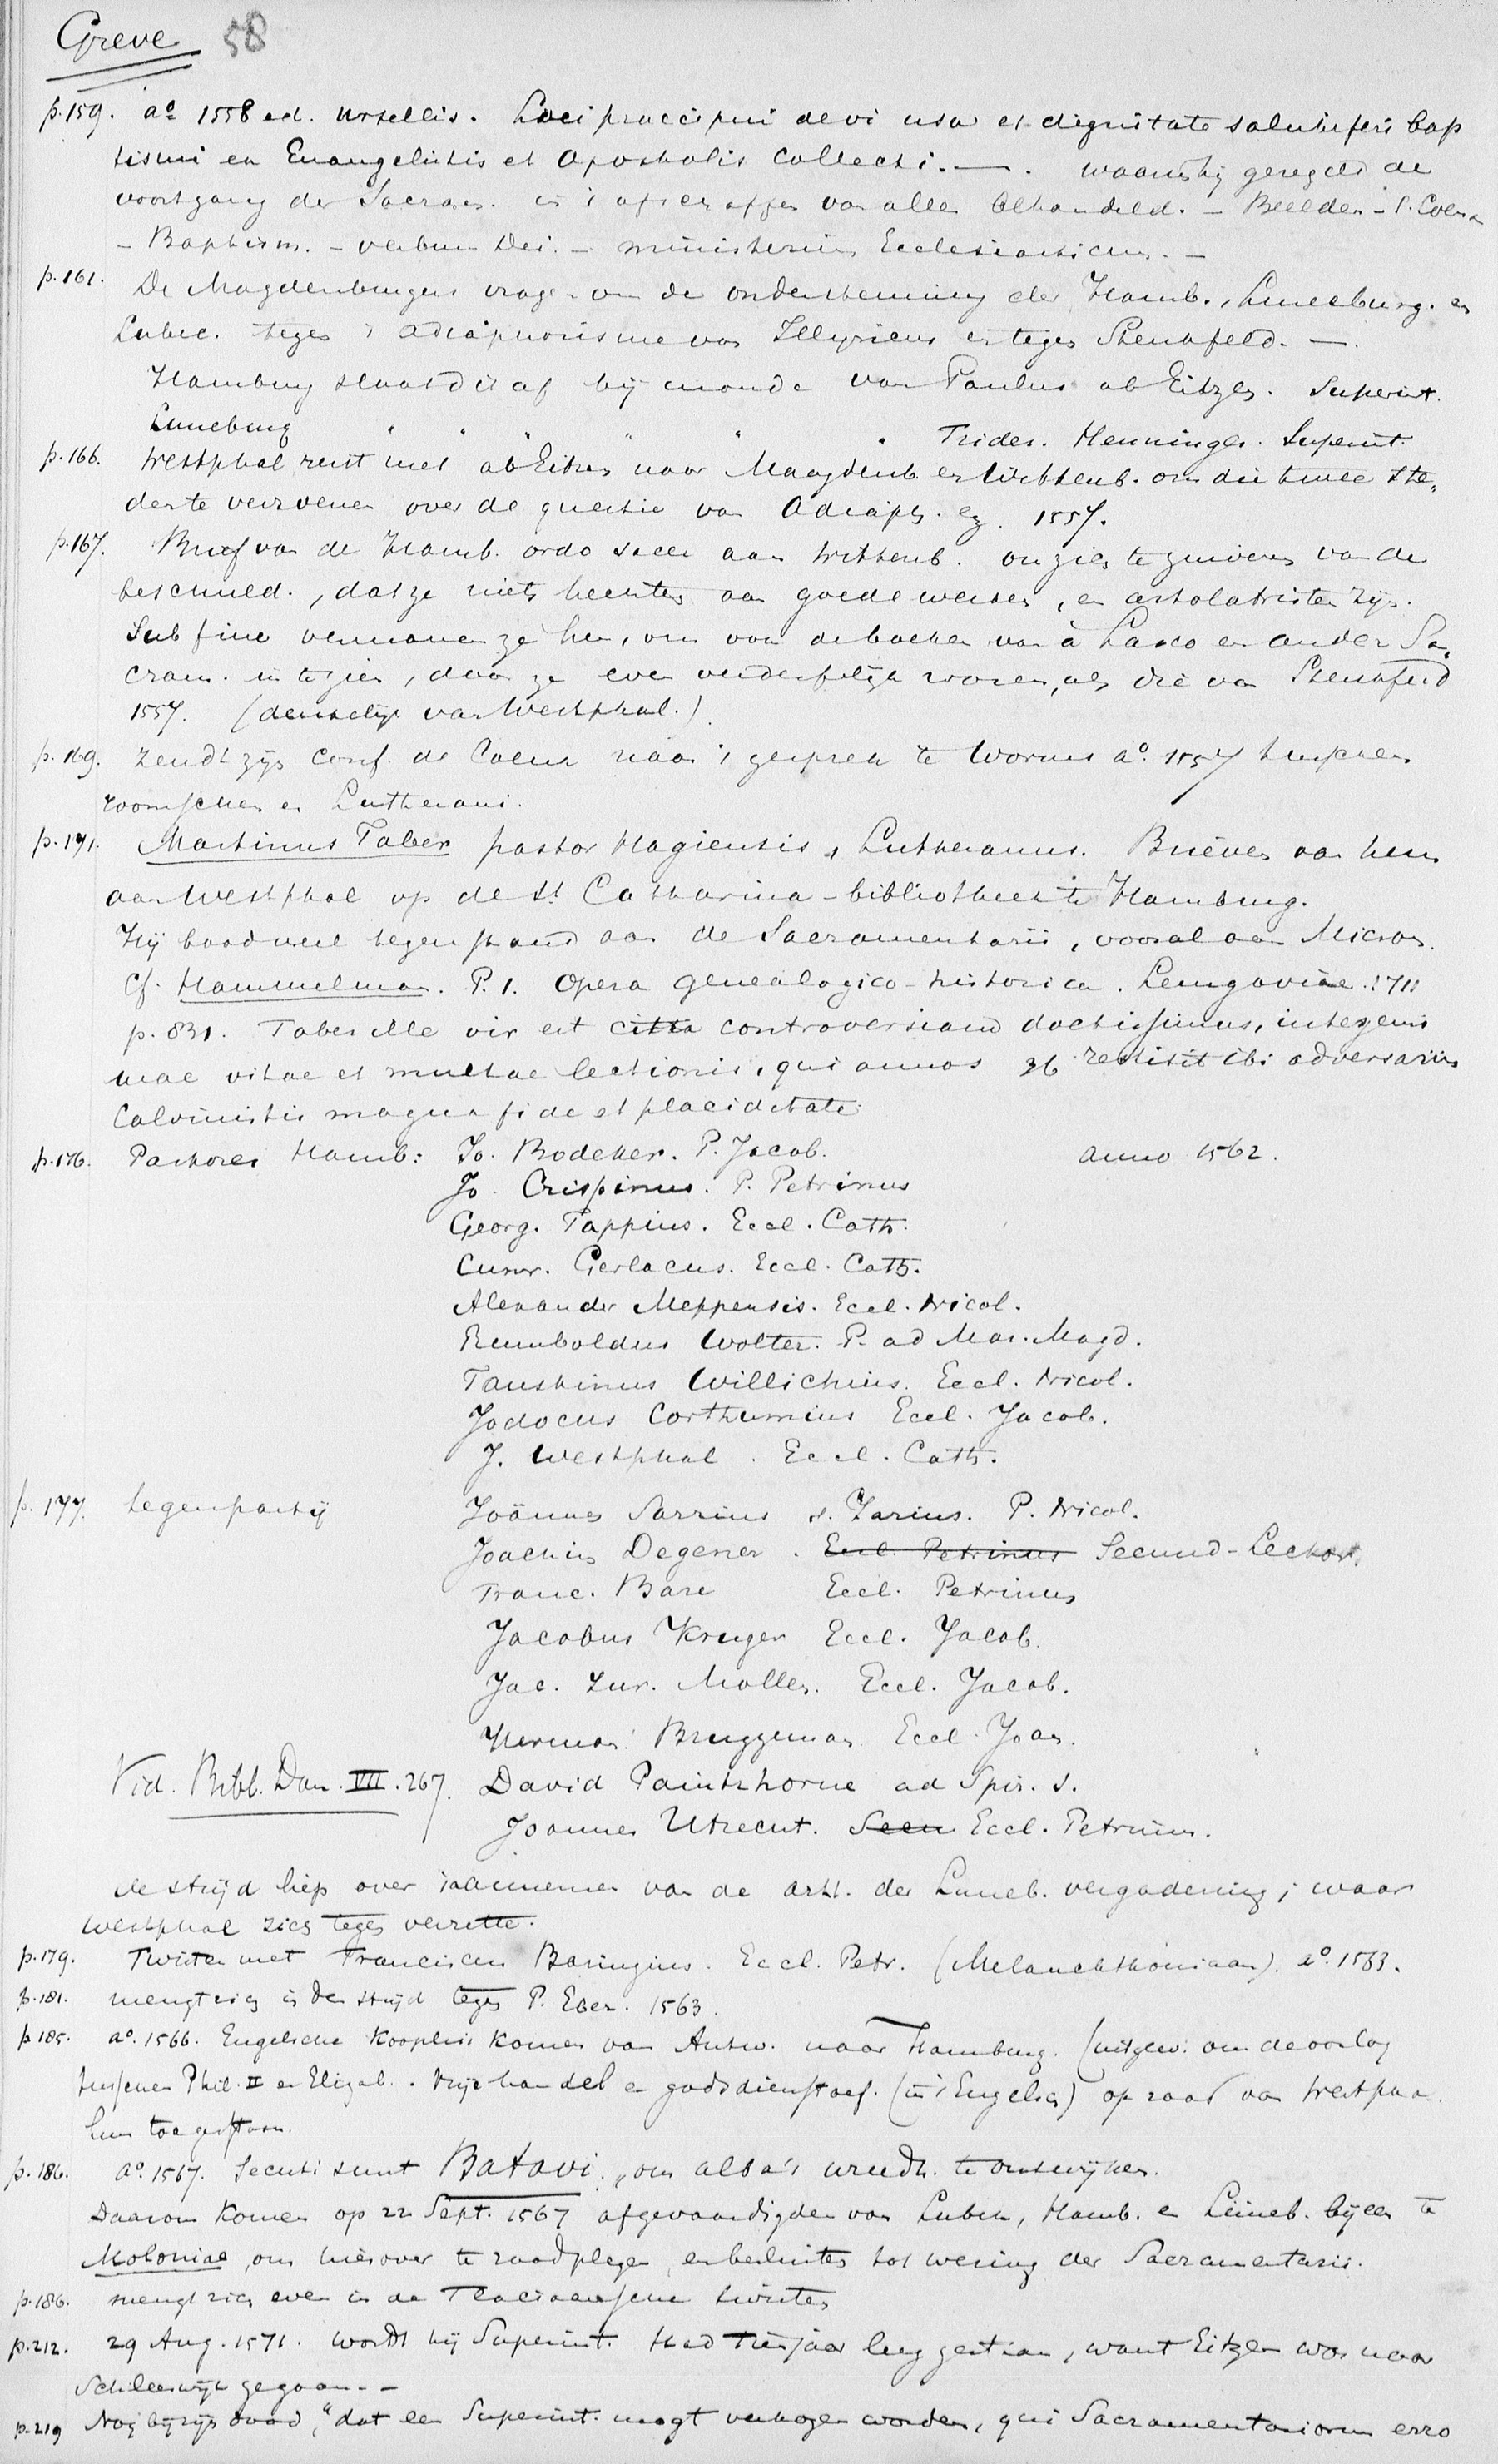 Greve 58
p.159. aº 1558 ed. Ursellis. Loci praecipui de vi usu et dignitate salutiferi bap
tismi ex Evangelistis et Apostolis collecti. —. waarbij geregeld de
voortgang der Sacram. is 't after affer van alles behandeld. – Beelden – S. Coena
– Baptism. – verbum Dei. – ministerium Ecclesiasticum. –
p.161. De Magdenburgers vragen om de ondersteuning der Hamb., Luneburg. en
Lubec. tegen 't adiaphorisme van Illyricus en tegen Stenkfeld. —.
Hamburg slaat dit af bij monde van Paulus ab Eitzen. Superint.
Luneburg " " " " " " Frider. Henninges. Superint.
p.166. Westphal reist met ab Eitzen naar Maagdenb. en Wittenb. om die twee ste,
den te verzoenen over de quaestie van Adiaph. ez. 1557.
p.167. Brief van de Hamb. ordo sacer aan Wittenb. om zich te zuiveren van de
beschuld., dat ze niets hechten aan goede werken, en artolatristen zijn.
Sub fine vermanen ze hen, om van de boeken van à Lasco en ander Sa,
cram. in te zien, daar ze even verderfelijk waren, als die van Stenkfeld
1557. (denkelijk van Westphal.)
p.169. Zendt zijn Conf. de Coena naar 't gesprek te Worms aº. 1557 tusschen
roomschen en Lutherani.
p.171. Martinus Faber pastor Hagiensis, Lutheranus. Brieven van hem
aan Westphal op de St. Catharina-bibliotheek te Hamburg.
Hij bood veel tegenstand aan de Sacramentarii, vooral aan Micron.
Cf. Hammelman. P.1. Opera genealogico-historica. Lemgoviae. 1711
p. 831. Faber ille vir est citta controversiam doctissimus, integerri
mae vitae et multae lectionis, qui annos 36 restitit ibi adversariis
Calvinistis magna fide et placiditate.
p.176. Pastores Hamb: Jo. Bodeker. P. Jacob. anno 1562.
Jo. Crispinus. P. Petrinus
Georg. Tappius. Eccl. Cath.
Cunr. Gerlacus. Eccl. Cath.
Alexander Meppensis. Eccl. Nicol.
Rumboldus Wolter. P. ad Mar. Magd.
Faustinus Willichius. Eccl. Nicol.
Jodocus Corthumius Eccl. Jacob.
J. Westphal. Eccl. Cath.
p. 177. tegenpartij Joännes Sarrius s. Zarius. P. Nicol.
Joachim Degener. Eccl. Petrinus Secund-Lector.
Franc. Bare Eccl. Petrinus
Jacobus Kruger Eccl. Jacob.
Jac. zur. Mollen. Eccl. Jacob.
Herman. Bruggeman Eccl. Joan.
Vid. Bibl. Dan. VII. 267. David Paintzhorne ad Spir. S.
Joannes Utrecht. Secu Eccl. Petrinus.
de strijd liep over 't aannemen van de artt. der Luneb. vergadering; waar
Westphal zich tegen verzette.
p.179. Twisten met Franciscus Baringius. Eccl. Petr. (Melanchthoniaan). aº. 1563.
p.181. mengt zich in den strijd tegen P. Eber. 1563.
p.185. aº. 1566. Engelsche kooplui komen van Antw. naar Hamburg. (uitgew: om de oorlog
tusschen Phil. II en Elizab. Vrije handel en godsdienstoef. (in 't Engelsch) op raad van Westphal.
hun toegestaan.
p.186. aº. 1567. Secuti sunt Batavi. "om alba's wreedh. te ontwijken.
Daarom komen op 22 Sept. 1567 afgevaardigden van Lubek, Hamb. en Lüneb. bijeen te
Moloniae, om hierover te raadplegen, en besluiten tot wering der Sacramentarii.
p.186. mengt zich even in de Flaciaansche twisten
p.212. 29 Aug. 1571. wordt hij Superint. Had tien jaar leeg gestaan, want Eitzen was naar
Schleeswijk gegaan. –
p.219 Nog bij zijn dood, "dat een Superint. mogt verkozen worden, qui Sacramentariorum erro